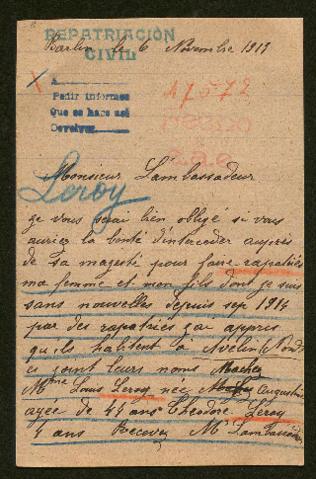 REPATRIACIÓN
CIVIL
Barlin le 6 Novembre 1917
A
Pedir informes
Que se hace así
Devolver
17572
Leroy
Monsieur L'ambassadeur
je vous serai bien obligé si vous
auriez la bonté d'interceder auprès
de sa magesté pour faire rapatriés
ma femme et mon fils dont je suis
sans nouvelles depuis sep 1914
par des rapatriés j'ai appris
qu'ils habitent la Avelin Nord
ci joint leurs noms
Mme Louis Leroy née Augustine
agée de 44 ans Théodore Leroy
4 ans Recevez Mr L'ambassadeur